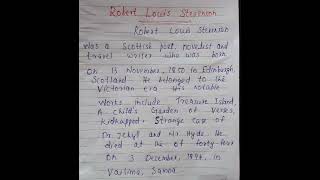 Robert Louis Stevenson
Robert Louis Stevenson
was a Scottish poet, novelist and
travel writer who was born
on 13 November, 1850 in Edinburgh,
Scotland. He belonged to the
Victorian era. His notable
works include Treasure Island,
A child's Garden of Verses,
kidnapped, Strange case of
Dr. Jekyll and Mr. Hyde. He
died at the of forty-four
on 3 December, 1894, in
Vailima, Samoa